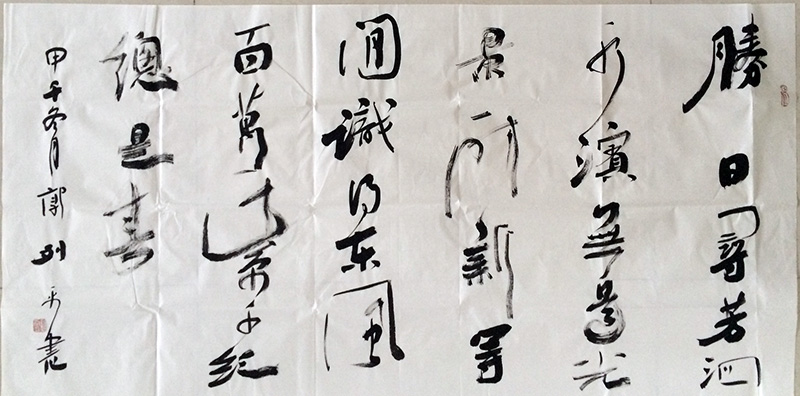 勝日尋芳泗
水濱無邊光
景時新等
閒識得東風
面萬紫千紅
總是春
甲午冬月列平書